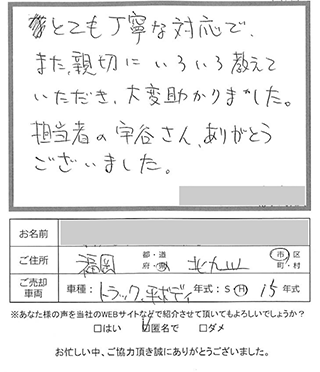 とても丁寧な対応で、
また、親切にいろいろ教えて
いただき、大変助かりました。
担当者の宇谷さん、ありがとう
ございました。
お名前
ご住所 福岡 都・道 府・県 北九州 市・区 町・村
ご売却車両 車種：トラック、平ボディ 年式：S・H 15 年式
※あなた様の声を当社のWEBサイトなどで紹介させて頂いてもよろしいでしょうか？
□はい ☑匿名で □ダメ
お忙しい中、ご協力頂き誠にありがとうございました。